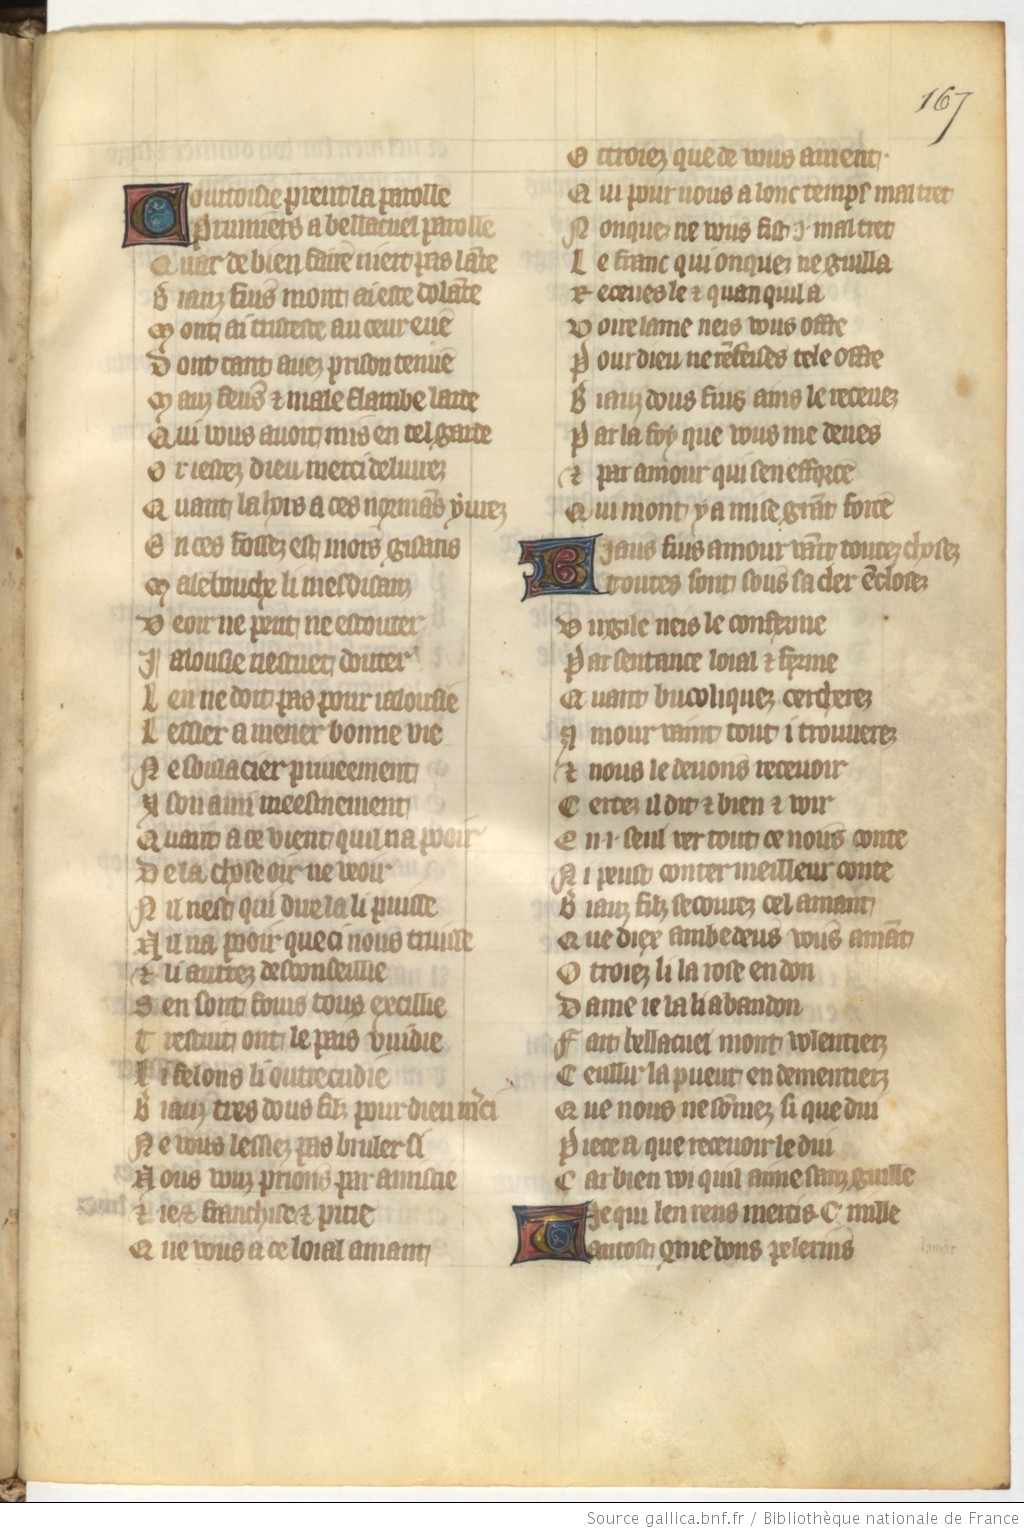 167
Courtoisie prent la parolle
Prumiers a bellacuel parolle
Quar de bien faire niert pas lāte
Biauz fius mont ai este dolāte
Mont ai tristeste au cuer eue
Dont tant auez prison tenue
Mauz feus & male flambe larde
Qui vous auoit mis en tel garde
Or iestez dieu merci deliurez
Quant la hors a ces normās yurez
En ces fossez est mors gisans
Malebouche li mesdisanz
Veoir ne peut ne escouter
Jalousie nestuet douter
Len ne doit pas pour ialousie
Lessier a mener bonne vie
Ne soulacier priueement
A son ami meesmement
Quant a ce vient quil na pooir
De la chose oir ne veoir
Nil nest qui dire la li puisse
Nil na pooir que ci nous truisse
Et li autrez desconseillie
Sen sont fouis tous exillie
Trestuit ont le pais vuidie
Li felons li outrecuidie
Biauz tres dous filz pour dieu m̄ci
Ne vous lessiez pas bruler si
Nous vouz prions par amistie
Et ie & franchise & pitie
Que vous a ce loial amant
Ottroiez que de vous ament
Qui pour vous a lonc temps mal tret
Nonquez ne vous fist .i. mal tret
Le franc qui onquez ne guilla
Receues le & quan quil a
Voire lame neis vous offre
Pour dieu ne refuses tele offre
Biauz dous fius ains le receuez
Par la foy que vous me deues
Et par amour qui sen efforce
Qui mont y a mise grāt force
Biaus fius amour vaīt toutez chosez
Toutes sont sous sa clef ēclosez
Virgile neis le conferme
Par sentance loial & ferme
Quant bucoliquez cercherez
Amour vaint tout i trouuerez
Et nous le deuons receuoir
Certez il dit & bien & voir
En .i. seul ver tout ce nous conte
Ni peust conter meilleur conte
Biauz filz secourez cel amant
Que diex ambedeus vous amāt
Otroiez li la rose en don
Dame ie la li abandon
Fait bellacuel mont volentierz
Ceullir la puent en dementierz
Que nous ne sōmez si que dui
Piece a que receuoir le dui
Car bien voi quil aime sanz guille
Je qui len rens mercis .C. mille
Tantost gme bons pelerins